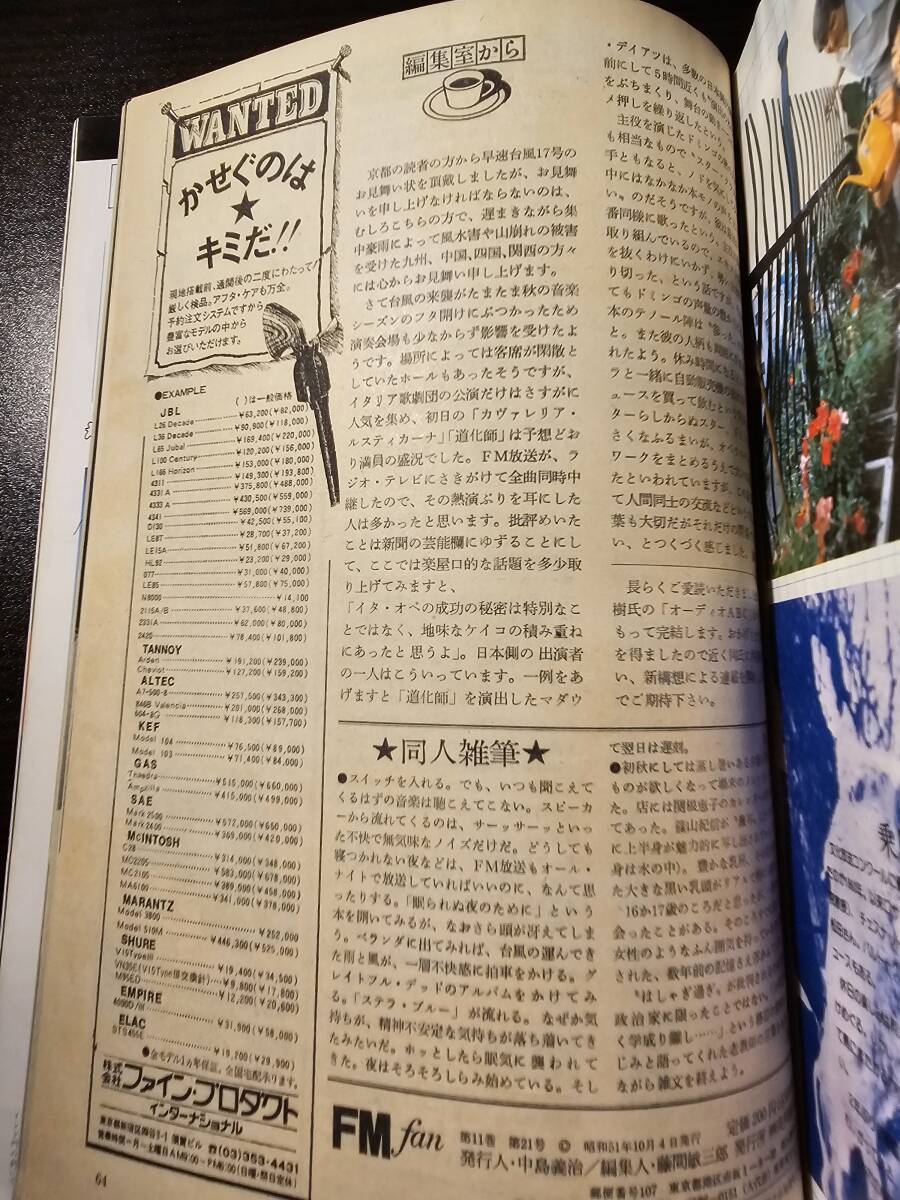 WANTED
かせぐのは
★
キミだ!!
現地搭載前、通関後の二度にわたって
厳しく検品。アフタ・ケアも万全。
予約注文システムですから
豊富なモデルの中から
お選びいただけます。
●EXAMPLE ( )は一般価格
JBL
L26 Decade ¥63,200(¥82,000)
L36 Decade ¥90,900(¥118,000)
L65 Jubal ¥169,400(¥220,000)
L100 Century ¥120,200(¥156,000)
L166 Horizon ¥153,000(¥180,000)
4311 ¥149,300(¥193,800)
4331A ¥375,800(¥488,000)
4333A ¥430,500(¥559,000)
4341 ¥569,000(¥739,000)
D130 ¥42,500(¥55,100)
LE8T ¥28,700(¥37,200)
LE15A ¥51,800(¥67,200)
HL92 ¥23,200(¥29,000)
077 ¥31,000(¥40,000)
LE85 ¥57,800(¥75,000)
N8000 ¥14,100
2115A/B ¥37,600(¥48,800)
2331A ¥62,000(¥80,000)
2420 ¥78,400(¥101,800)
TANNOY
Arden ¥191,200(¥239,000)
Cheviot ¥127,200(¥159,200)
ALTEC
A7-500-8 ¥257,500(¥343,300)
846B Valencia ¥201,000(¥268,000)
604-8G ¥118,300(¥157,700)
KEF
Model 104 ¥76,500(¥89,000)
Model 103 ¥71,400(¥84,000)
GAS
Thaedra ¥515,000(¥660,000)
Ampzilla ¥415,000(¥499,000)
SAE
Mark 2500 ¥572,000(¥650,000)
Mark 2400 ¥369,000(¥420,000)
McINTOSH
C28 ¥314,000(¥348,000)
MC2205 ¥583,000(¥678,000)
MC2105 ¥389,500(¥458,000)
MA6100 ¥341,000(¥378,000)
MARANTZ
Model 3800 ¥252,000
Model 510M ¥446,300(¥525,000)
SHURE
V15TypeIII ¥19,400(¥34,500)
VN35E(V15Type III交換針) ¥9,800(¥17,800)
M95ED ¥12,200(¥20,600)
EMPIRE
4000D/III ¥31,900(¥58,000)
ELAC
STS455E ¥19,200(¥29,900)
●全モデル1ヵ年保証。全国宅配承ります。
株式会社ファイン・プロダクト
インターナショナル
東京都新宿区四谷3-1 須賀ビル ☎(03)353-4431
営業時間=月〜土曜日AM9:00〜PM6:00(日曜・祭日定休)
64
編集室から
京都の読者の方から早速台風17号の
お見舞い状を頂戴しましたが、お見舞
いを申し上げなければならないのは、
むしろこちらの方で、遅まきながら集
中豪雨によって風水害や山崩れの被害
を受けた九州、中国、四国、関西の方々
には心からお見舞い申し上げます。
さて台風の来襲がたまたま秋の音楽
シーズンのフタ開けにぶつかったため
演奏会場も少なからず影響を受けたよ
うです。場所によっては客席が閑散と
していたホールもあったそうですが、
イタリア歌劇団の公演だけはさすがに
人気を集め、初日の「カヴァレリア・
ルスティカーナ」「道化師」は予想どお
り満員の盛況でした。FM放送が、ラ
ジオ・テレビにさきがけて全曲同時中
継したので、その熱演ぶりを耳にした
人は多かったと思います。批評めいた
ことは新聞の芸能欄にゆずることにし
て、ここでは楽屋口的な話題を多少取
り上げてみますと、
「イタ・オペの成功の秘密は特別なこ
とではなく、地味なケイコの積み重ね
にあったと思うよ」。日本側の出演者
の一人はこういっています。一例をあ
げますと「道化師」を演出したマダウ
・デイアツは、多数の日本
前にして5時間近くも
をぶちまくり、舞台の
メ押しを繰り返したという。
主役を演じたドミンゴの
も相当なもので"スター・
手ともなると、ノドを気
中にはなかなか本モノの
い。"のだそうですが、彼は
番同様に歌ったという。主
取り組んでいるので、
を抜くわけにいかず、
り切った、という話です
てもドミンゴの声量の
本のテノール陣は
と。また彼の人柄も
れたよう。休み時間に
ラと一緒に自動販売機
ュースを買って飲むという
ターらしからぬスター
さくなふるまいが、オペ
ワークをまとめるうえで
たといわれていますが、この
て人間同士の交流などと
葉も大切だがそれだけの
い、とつくづく感じました。
長らくご愛読いただきまし
樹氏の「オーディオABC」
もって完結します。おかげ
を得ましたので近く同氏
い、新構想による連載を
でご期待下さい。
★同人雑筆★
●スイッチを入れる。でも、いつも聞こえて
くるはずの音楽は聴こえてこない。スピーカ
ーから流れてくるのは、サーッサーッといっ
た不快で無気味なノイズだけだ。どうしても
寝つかれない夜などは、FM放送もオール・
ナイトで放送していればいいのに、なんて思
ったりする。「眠られぬ夜のために」という
本を開いてみるが、なおさら頭が冴えてしま
う。ベランダに出てみれば、台風の運んでき
た雨と風が、一層不快感に拍車をかける。グ
レイトフル・デッドのアルバムをかけてみ
る。「ステラ・ブルー」が流れる。なぜか気
持ちが、精神不安定な気持ちが落ち着いてき
たみたいだ。ホッとしたら眠気に襲われて
きた。夜はそろそろしらみ始めている。そし
て翌日は遅刻。
●初秋にしては蒸し暑いある
ものが欲しくなって
た。店には関根恵子のカレン
てあった。篠山紀信が
に上半身が魅力的に写し
身は水の中)。豊かな乳房、
た大きな黒い乳頭がリアル
"16か17歳のころだと思った
会ったことがある。そのころ
女性のようなふん囲気を持って
された、数年前の記憶さえ
"はしゃぎ過ぎ"が批判され
政治家に限ったことではない。
く学成り難し……"という
じみと語ってくれた老教師の
ながら雑文を終えよう。
FM fan 第11巻 第21号 © 昭和51年10月4日発行 定価200円
発行人・中島義治/編集人・藤間敏三郎 発行所
郵便番号107 東京都港区